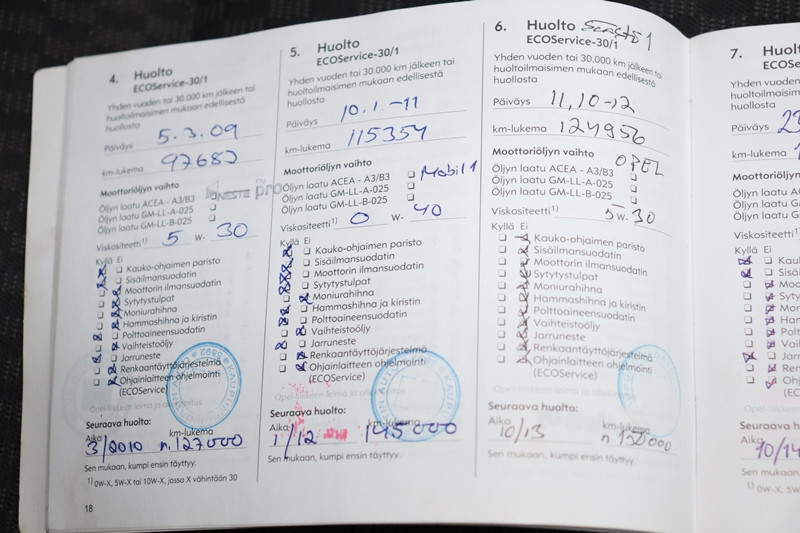 4. Huolto
ECOService-30/1
Yhden vuoden tai 30.000 km jälkeen tai
huoltoilmaisimen mukaan edellisestä
huollosta
Päiväys 5.3.09
km-lukema 97682
Moottoriöljyn vaihto
Öljyn laatu ACEA - A3/B3
Öljyn laatu GM-LL-A-025
Öljyn laatu GM-LL-B-025
NESTE pro
Viskositeetti1) 5 W- 30
Kyllä Ei
Kauko-ohjaimen paristo
Sisäilmansuodatin
Moottorin ilmansuodatin
Sytytystulpat
Moniurahihna
Hammashihna ja kiristin
Polttoaineensuodatin
Vaihteistoöljy
Jarruneste
Renkaantäyttöjärjestelmä
Ohjainlaitteen ohjelmointi
(ECOService)
Seuraava huolto:
Aika km-lukema
3/2010 n. 127000
Sen mukaan, kumpi ensin täyttyy.
1) 0W-X, 5W-X tai 10W-X, jossa X vähintään 30
18
5. Huolto
ECOService-30/1
Yhden vuoden tai 30.000 km jälkeen tai
huoltoilmaisimen mukaan edellisestä
huollosta
Päiväys 10.1.-11
km-lukema 115354
Moottoriöljyn vaihto
Öljyn laatu ACEA - A3/B3 Mobil 1
Öljyn laatu GM-LL-A-025
Öljyn laatu GM-LL-B-025
Viskositeetti1) 0 W- 40
Kyllä Ei
Kauko-ohjaimen paristo
Sisäilmansuodatin
Moottorin ilmansuodatin
Sytytystulpat
Moniurahihna
Hammashihna ja kiristin
Polttoaineensuodatin
Vaihteistoöljy
Jarruneste
Renkaantäyttöjärjestelmä
Ohjainlaitteen ohjelmointi
(ECOService)
Opel-liikkeen leima ja allekirjoitus
Seuraava huolto:
Aika km-lukema
1/12 145000
Sen mukaan, kumpi ensin täyttyy.
6. Huolto
ECOService-30/1
Yhden vuoden tai 30.000 km jälkeen tai
huoltoilmaisimen mukaan edellisestä
huollosta
Päiväys 11,10-12
km-lukema 124956
Moottoriöljyn vaihto OPEL
Öljyn laatu ACEA - A3/B3
Öljyn laatu GM-LL-A-025
Öljyn laatu GM-LL-B-025
Viskositeetti1) 5 W- 30
Kyllä Ei
Kauko-ohjaimen paristo
Sisäilmansuodatin
Moottorin ilmansuodatin
Sytytystulpat
Moniurahihna
Hammashihna ja kiristin
Polttoaineensuodatin
Vaihteistoöljy
Jarruneste
Renkaantäyttöjärjestelmä
Ohjainlaitteen ohjelmointi
(ECOService)
Opel-liikkeen leima ja allekirjoitus
Seuraava huolto:
Aika km-lukema
10/13 n 150000
Sen mukaan, kumpi ensin täyttyy.
7. Huolt
ECOSe
Yhden vuoden
huoltoilmaisim
huollosta
Päiväys
km-lukema
Moottoriöljyn
Öljyn laatu A
Öljyn laatu G
Öljyn laatu G
Viskositeetti1)
Kyllä Ei
Kau
Sisä
Mo
Syty
Mo
Har
Pol
Vai
Jarr
Ren
Oh
(EC
Seuraava h
Aika
10/14
Sen mukaan
1) 0W-X, 5W